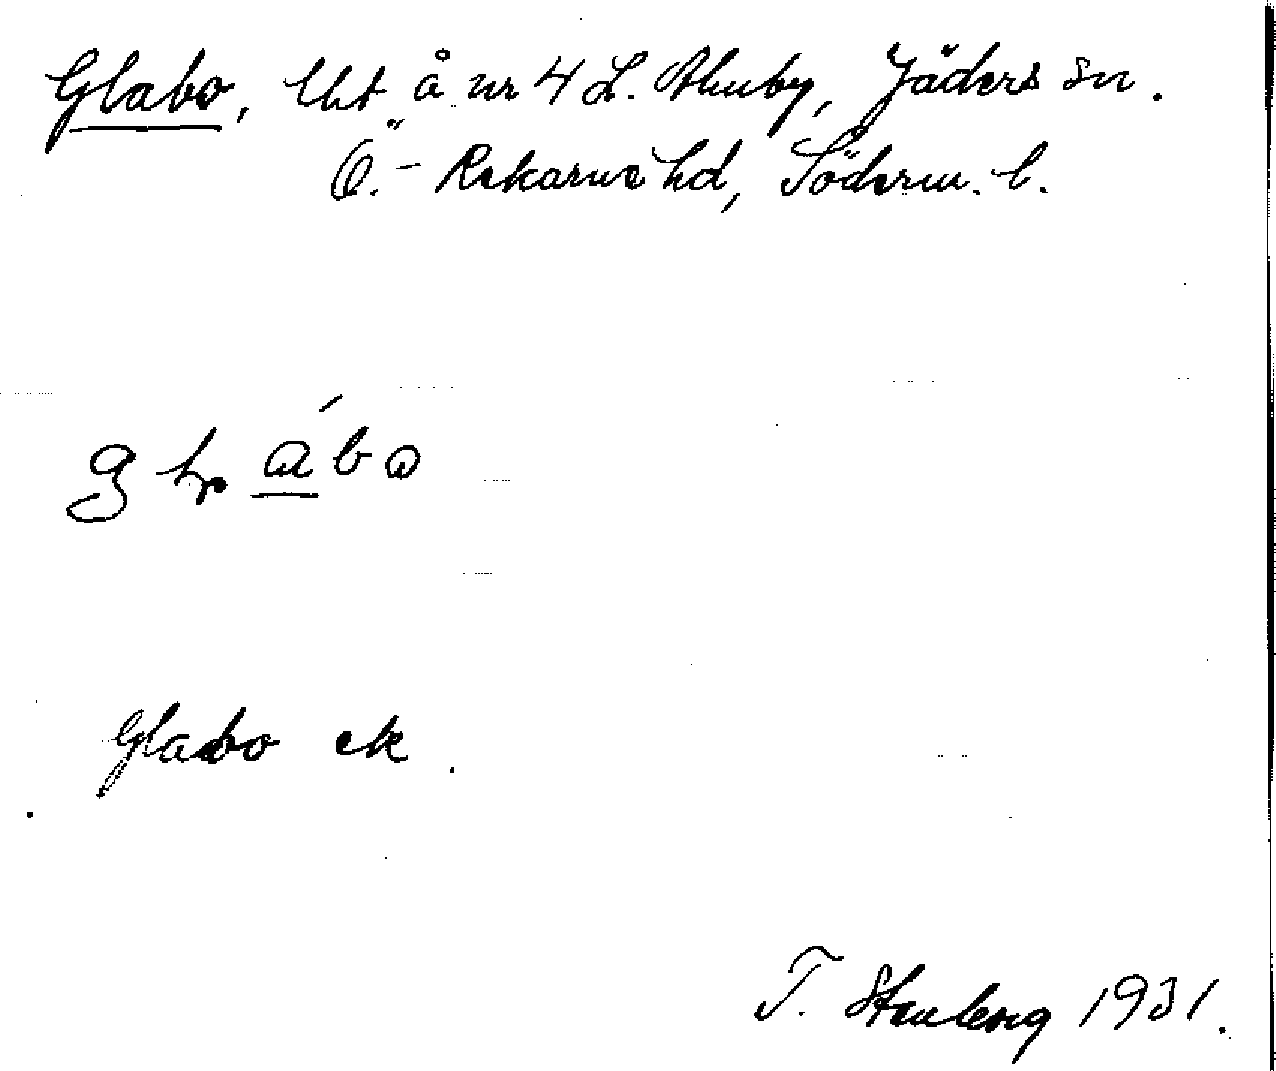 Glabo, lht å nr 4 L. Åkuby, Jäders sn.
Ö.- Rekarne hd, Söderm. l.
Glabo ek
T. Stenberg 1931.